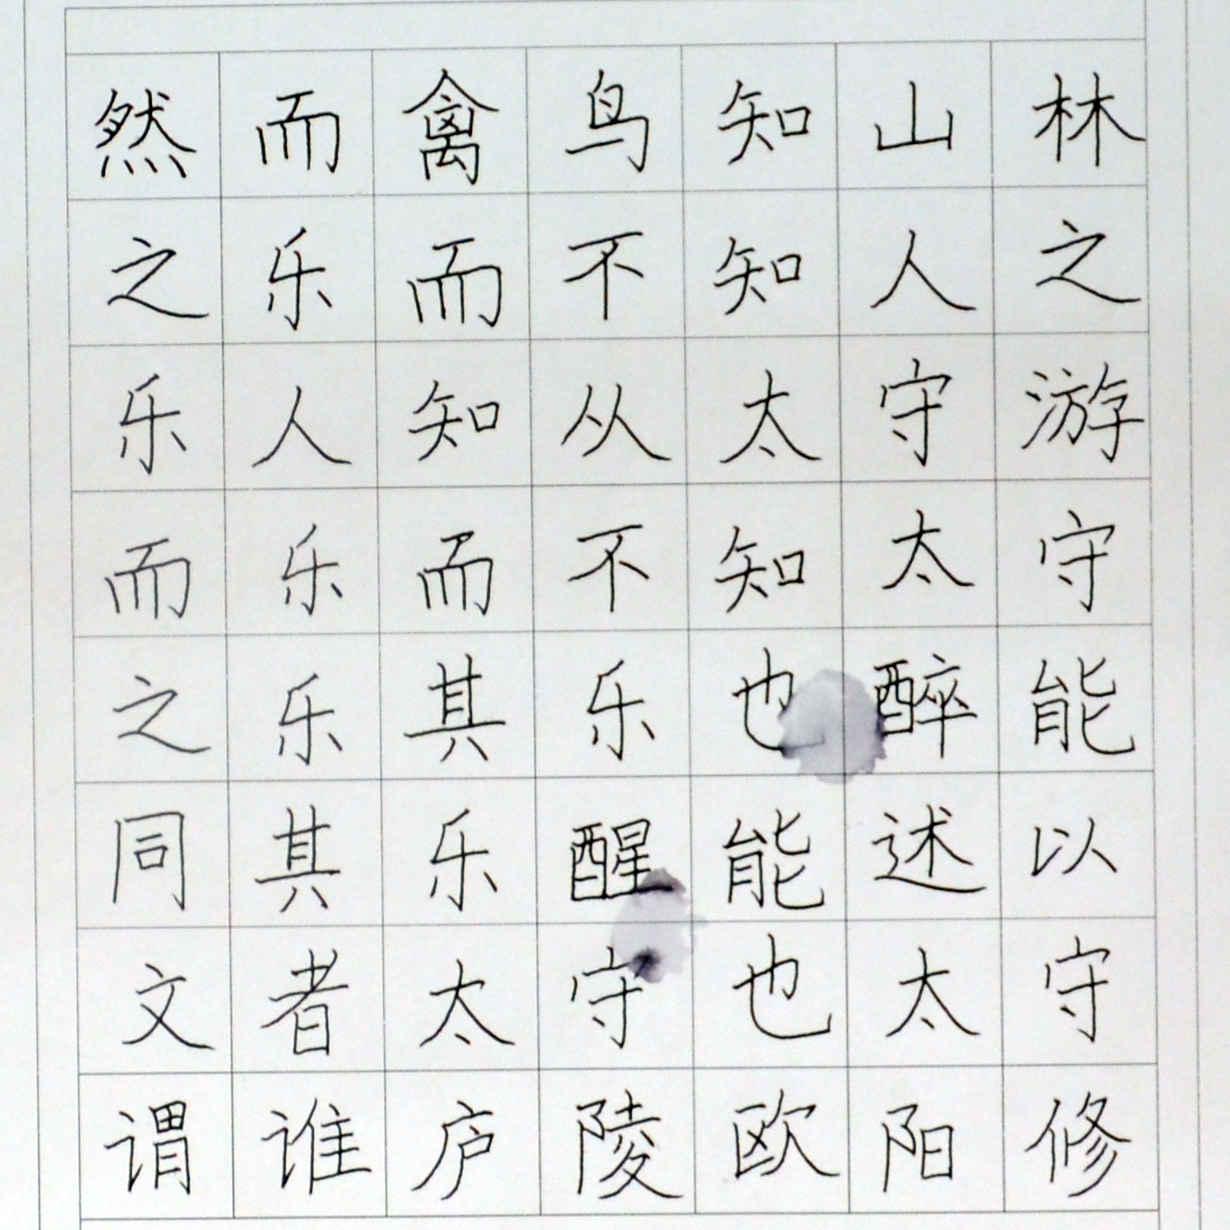 然而禽鸟知山林
之乐而不知人之
乐人知从太守游
而乐而不知太守
之乐其乐也醉能
同其乐醒能述以
文者太守也太守
谓谁庐陵欧阳修